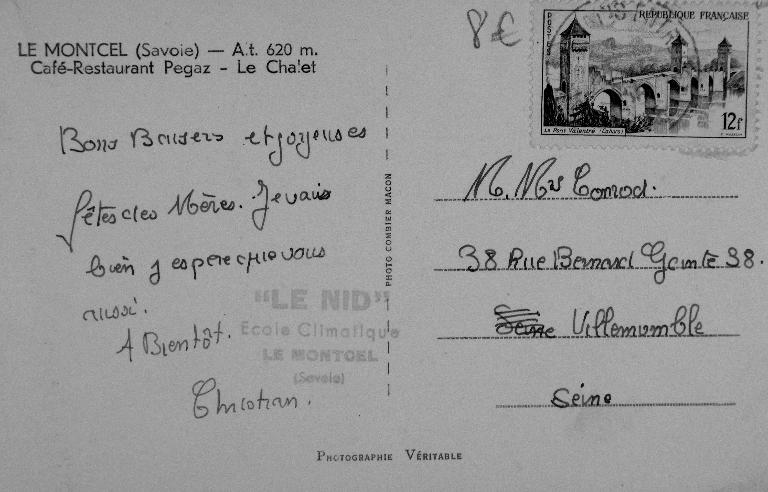 8€
POSTES
RÉPUBLIQUE FRANÇAISE
Le Pont Valentré (Cahors)
12f
LE MONTCEL (Savoie) — A.t. 620 m.
Café-Restaurant Pegaz - Le Chalet
Bons Baisers et joyeuses
fêtes des Mères. Je vais
bien j'espere que vous
aussi.
A Bientôt.
Christian.
"LE NID"
Ecole Climatique
LE MONTCEL
(Savoie)
PHOTO COMBIER MACON
M. Mme Conrod.
38 Rue Bernard Gante 38.
Seine Villemomble
Seine
PHOTOGRAPHIE VÉRITABLE